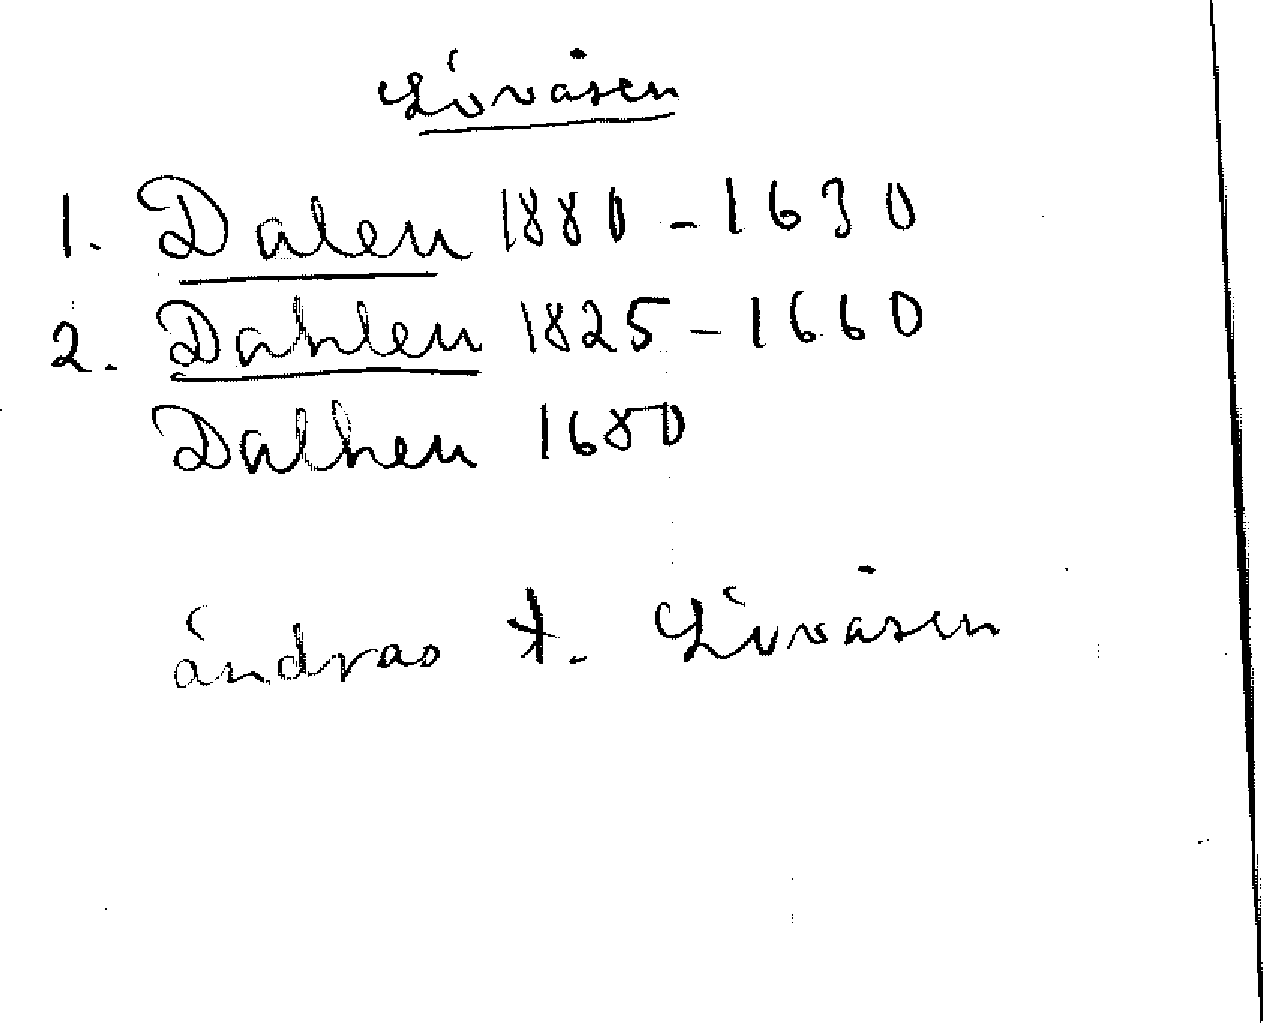 Lövåsen
1. Dalen 1880 - 1630
2. Dahlen 1825 - 1660
Dalhen 1680
ändras t. Lövåsen